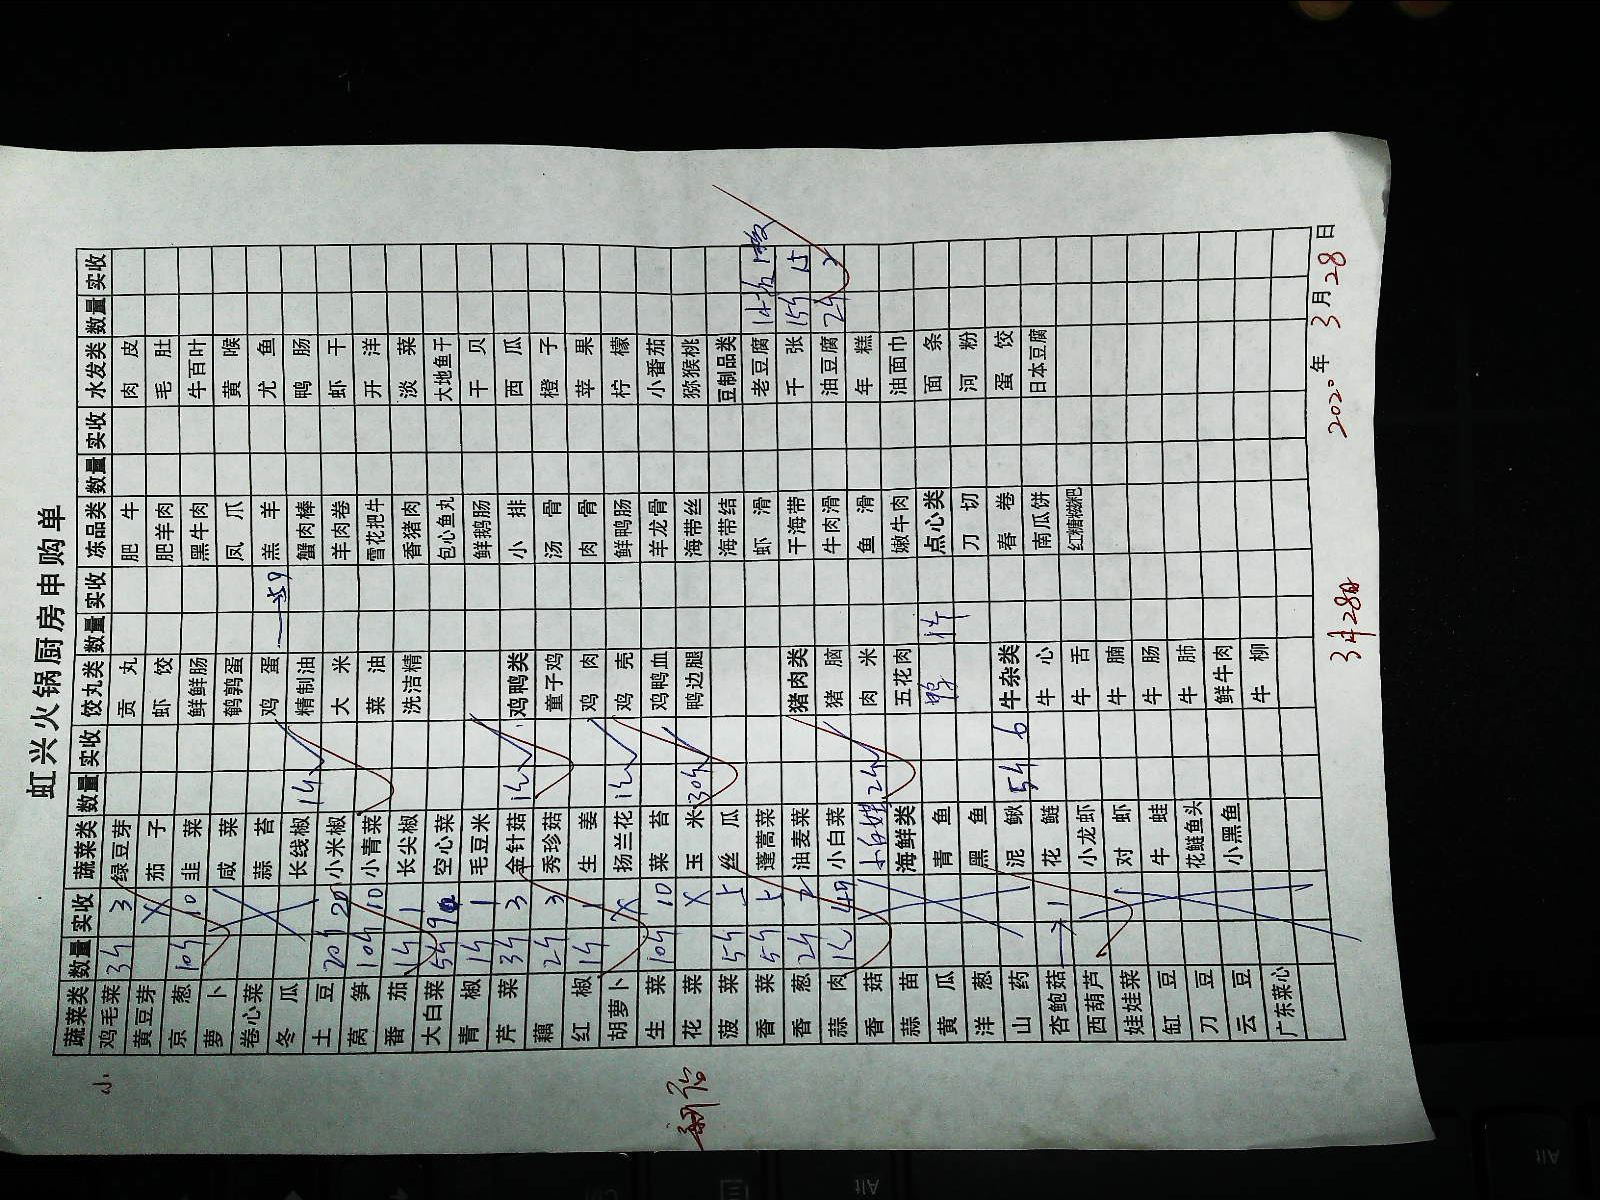 虹兴火锅厨房申购单
蔬菜类 数量 实收 蔬菜类 数量 实收 饺丸类 数量 实收 冻品类 数量 实收 水发类 数量 实收
鸡毛菜 3斤 3 绿豆芽 贡丸 肥牛 肉皮
黄豆芽 X 茄子 虾饺 肥羊肉 毛肚
京葱 10斤 10 韭菜 鲜鲜肠 黑牛肉 牛百叶
萝卜 咸菜 鹌鹑蛋 凤爪 黄喉
卷心菜 蒜苔 鸡蛋 羔羊 尤鱼
冬瓜 长线椒 精制油 蟹肉棒 鸭肠
土豆 20斤 20 小米椒 大米 羊肉卷 虾干
莴笋 10斤 10 小青菜 菜油 雪花把牛 开洋
番茄 1斤 1 长尖椒 洗洁精 香猪肉 淡菜
大白菜 空心菜 包心鱼丸 大地鱼干
青椒 1斤 1 毛豆米 鲜鹅肠 干贝
芹菜 3斤 3 金针菇 鸡鸭类 小排 西瓜
藕 2斤 3 秀珍菇 童子鸡 汤骨 橙子
红椒 1斤 1 生姜 鸡肉 肉骨 苹果
胡萝卜 X 扬兰花 鸡壳 鲜鸭肠 柠檬
生菜 10斤 10 菜苔 鸡鸭血 羊龙骨 小番茄
花菜 X 玉米 30斤 鸭边腿 海带丝 猕猴桃
菠菜 5斤 丝瓜 海带结 豆制品类
香菜 5斤 蓬蒿菜 虾滑 老豆腐
香葱 2斤 2 油麦菜 猪肉类 干海带 千张 15斤 15
蒜肉 小白菜 猪脑 牛肉滑 油豆腐 2斤 2
香菇 肉米 鱼滑 年糕
蒜苗 海鲜类 五花肉 嫩牛肉 油面巾
黄瓜 青鱼 鸭 1件 点心类 面条
洋葱 黑鱼 刀切 河粉
山药 泥鳅 5斤 6 牛杂类 春卷 蛋饺
杏鲍菇 1 花鲢 牛心 南瓜饼 日本豆腐
西葫芦 小龙虾 牛舌 红糖糍粑
娃娃菜 对虾 牛腩
缸豆 牛蛙 牛肠
刀豆 花鲢鱼头 牛肺
云豆 小黑鱼 鲜牛肉
广东菜心 牛柳
2020年3月28日
3月28日